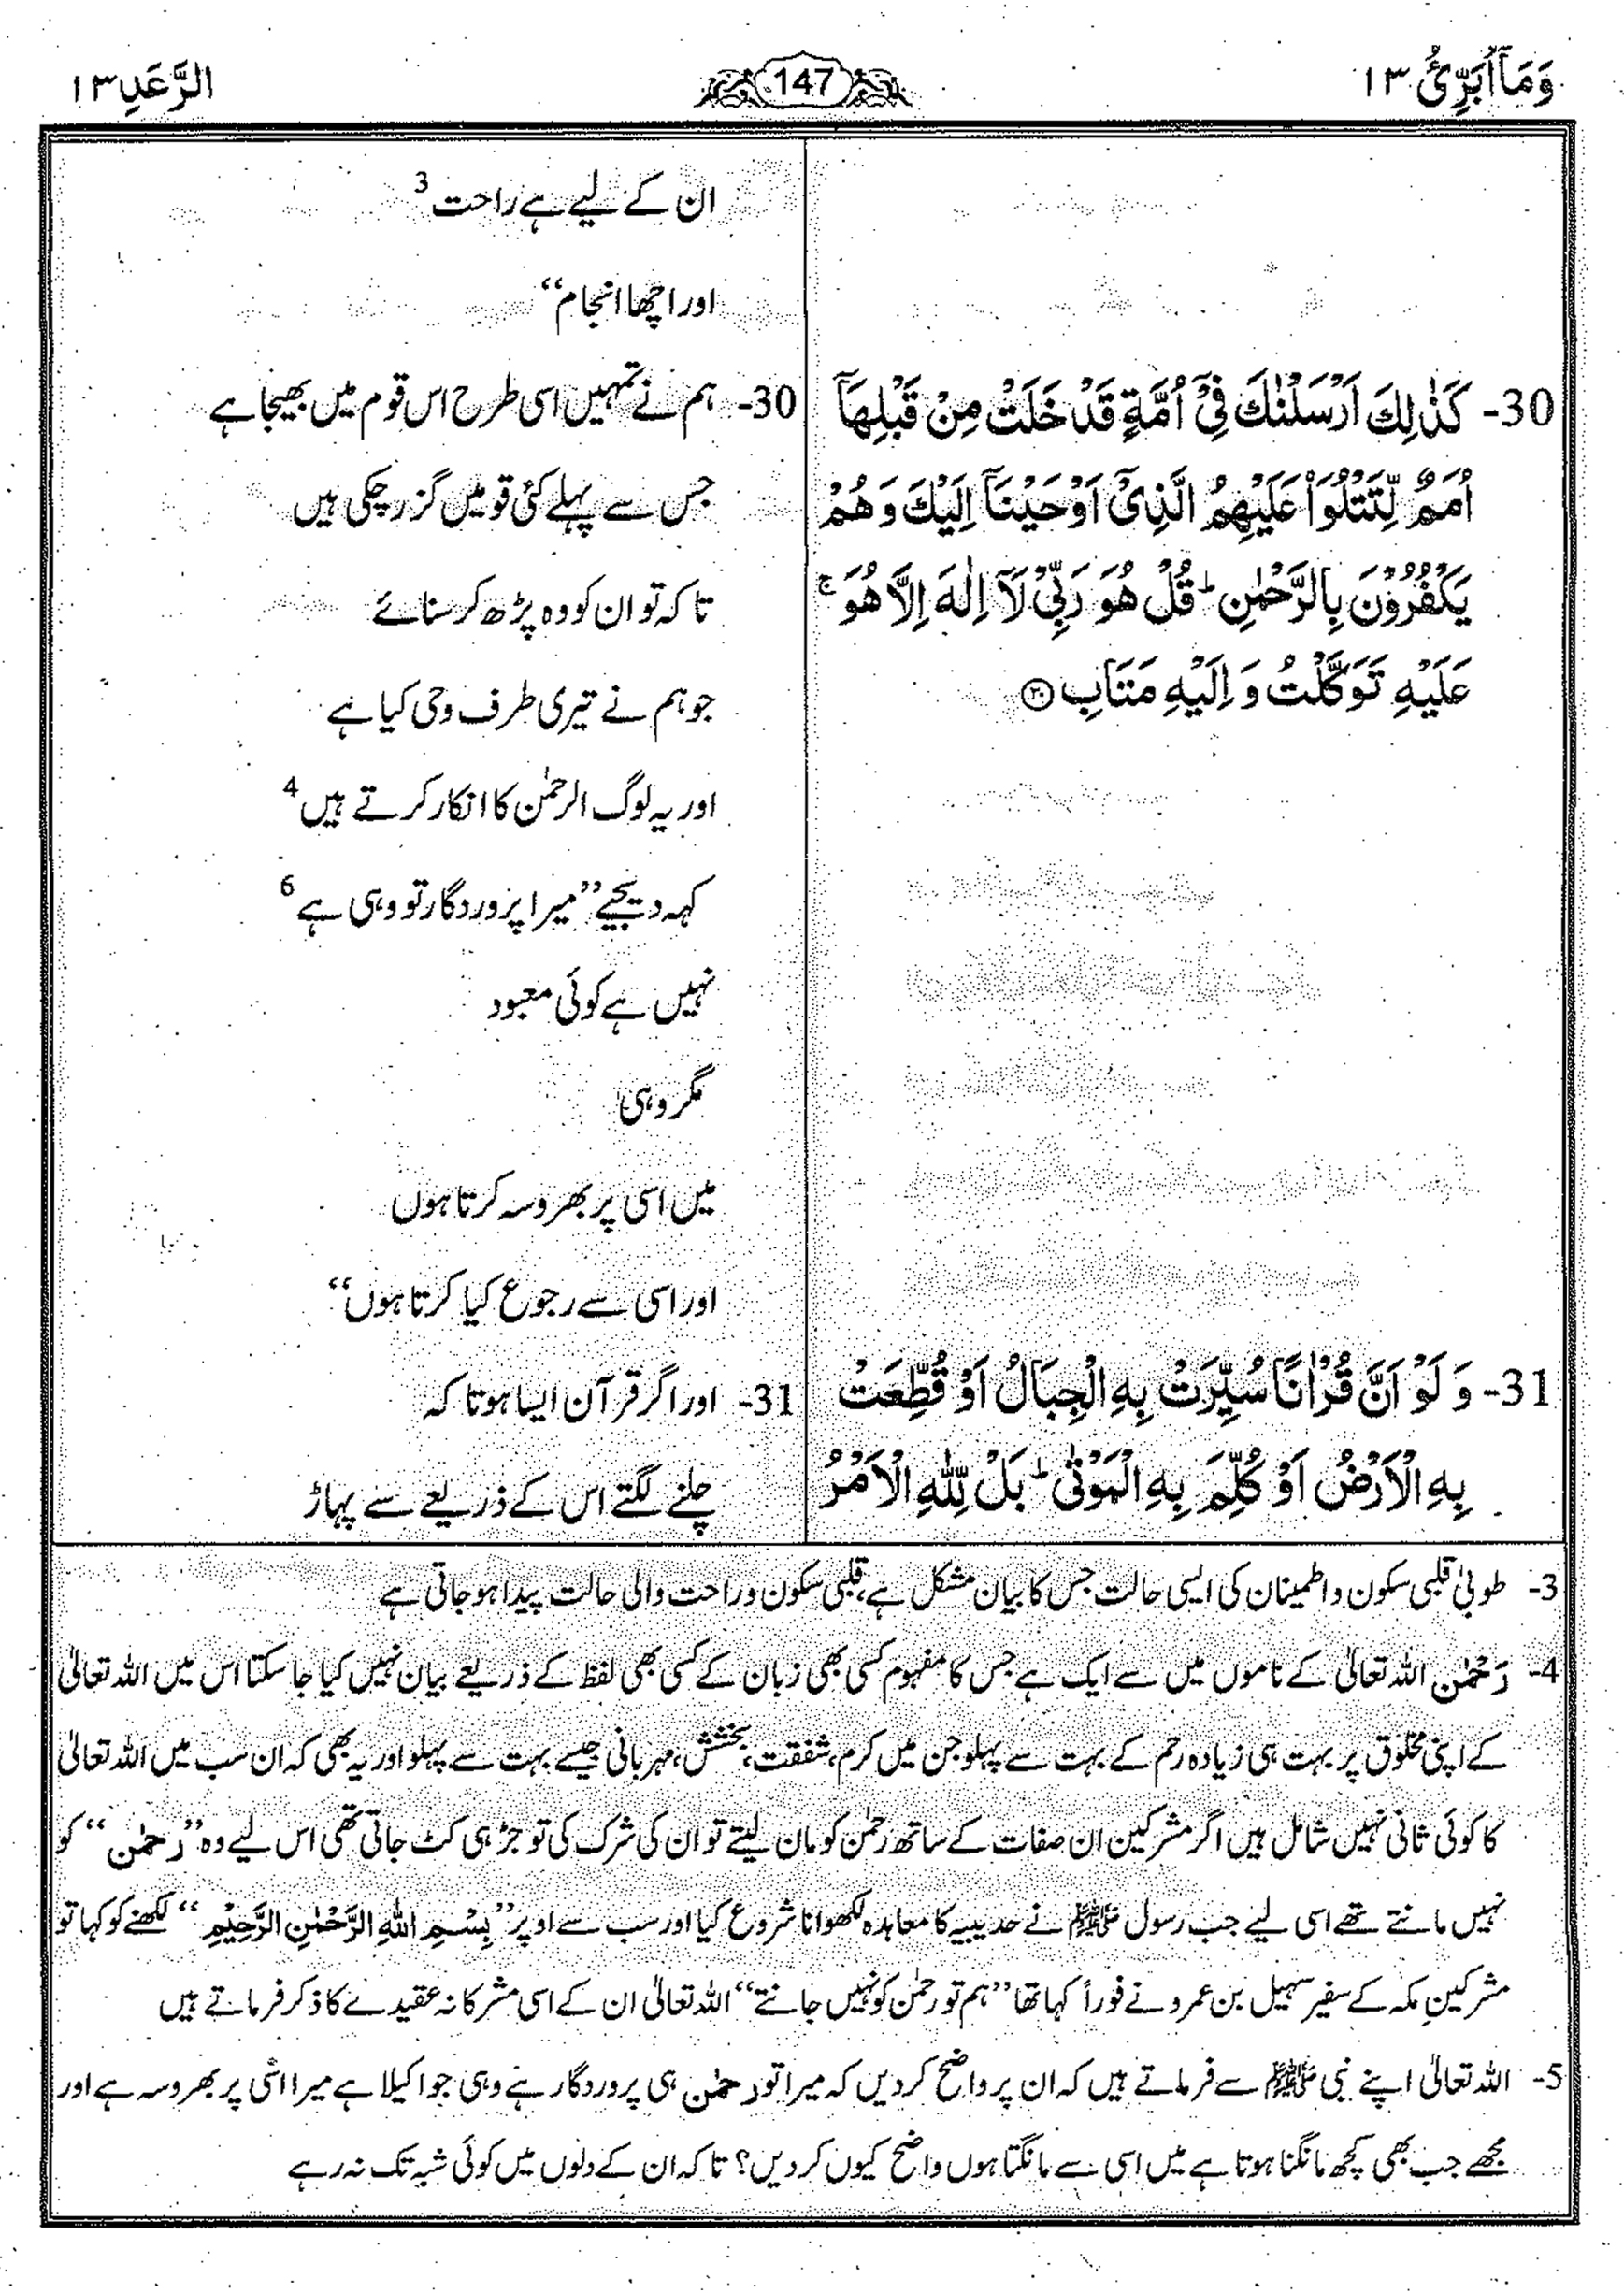 وَمَآ اُبَرِّئُ ١٣
147
الرَّعَدِ ١٣
ان کے لیے ہے راحت 3
اور اچھا انجام‘‘
30- كَذٰلِكَ اَرْسَلْنٰكَ فِيْٓ اُمَّةٍ قَدْ خَلَتْ مِنْ قَبْلِهَآ
اُمَمٌ لِّتَتْلُوَا۟ عَلَيْهِمُ الَّذِيْٓ اَوْحَيْنَآ اِلَيْكَ وَ هُمْ
يَكْفُرُوْنَ بِالرَّحْمٰنِ ؕ قُلْ هُوَ رَبِّيْ لَآ اِلٰهَ اِلَّا هُوَ ۚ
عَلَيْهِ تَوَكَّلْتُ وَ اِلَيْهِ مَتَابِ ۝٣٠
30- ہم نے تمہیں اسی طرح اس قوم میں بھیجا ہے
جس سے پہلے کئی قومیں گزر چکی ہیں
تا کہ تو ان کو وہ پڑھ کر سنائے
جو ہم نے تیری طرف وحی کیا ہے
اور یہ لوگ الرحمٰن کا انکار کرتے ہیں 4
کہہ دیجیے ’’میرا پروردگار تو وہی ہے 6
نہیں ہے کوئی معبود
مگر وہی
میں اسی پر بھروسہ کرتا ہوں
اور اسی سے رجوع کیا کرتا ہوں‘‘
31- وَ لَوْ اَنَّ قُرْاٰنًا سُيِّرَتْ بِهِ الْجِبَالُ اَوْ قُطِّعَتْ
بِهِ الْاَرْضُ اَوْ كُلِّمَ بِهِ الْمَوْتٰى ؕ بَلْ لِّلّٰهِ الْاَمْرُ
31- اور اگر قرآن ایسا ہوتا کہ
چلنے لگتے اس کے ذریعے سے پہاڑ
3- طوبیٰ قلبی سکون واطمینان کی ایسی حالت جس کا بیان مشکل ہے، قلبی سکون وراحت والی حالت پیدا ہو جاتی ہے
4- رَحْمٰن اللہ تعالیٰ کے ناموں میں سے ایک ہے جس کا مفہوم کسی بھی زبان کے کسی بھی لفظ کے ذریعے بیان نہیں کیا جا سکتا اس میں اللہ تعالیٰ
کے اپنی مخلوق پر بہت ہی زیادہ رحم کے بہت سے پہلو جن میں کرم، شفقت، بخشش، مہربانی جیسے بہت سے پہلو اور یہ بھی کہ ان سب میں اللہ تعالیٰ
کا کوئی ثانی نہیں شامل ہیں اگر مشرکین ان صفات کے ساتھ رحمٰن کو مان لیتے تو ان کی شرک کی تو جڑ ہی کٹ جاتی تھی اس لیے وہ ’’رحمٰن‘‘ کو
نہیں مانتے تھے اسی لیے جب رسول ﷺ نے حدیبیے کا معاہدہ لکھوانا شروع کیا اور سب سے اوپر ’’بِسْمِ اللهِ الرَّحْمٰنِ الرَّحِيْمِ‘‘ لکھنے کو کہا تو
مشرکینِ مکہ کے سفیر سہیل بن عمرو نے فوراً کہا تھا ’’ہم تو رحمٰن کو نہیں جانتے‘‘ اللہ تعالیٰ ان کے اسی مشرکانہ عقیدے کا ذکر فرماتے ہیں
5- اللہ تعالیٰ اپنے نبی ﷺ سے فرماتے ہیں کہ ان پر واضح کر دیں کہ میرا تو رحمٰن ہی پروردگار ہے وہی جو اکیلا ہے میرا اسی پر بھروسہ ہے اور
مجھے جب بھی کچھ مانگنا ہوتا ہے میں اسی سے مانگتا ہوں واضح کیوں کر دیں؟ تا کہ ان کے دلوں میں کوئی شبہ تک نہ رہے